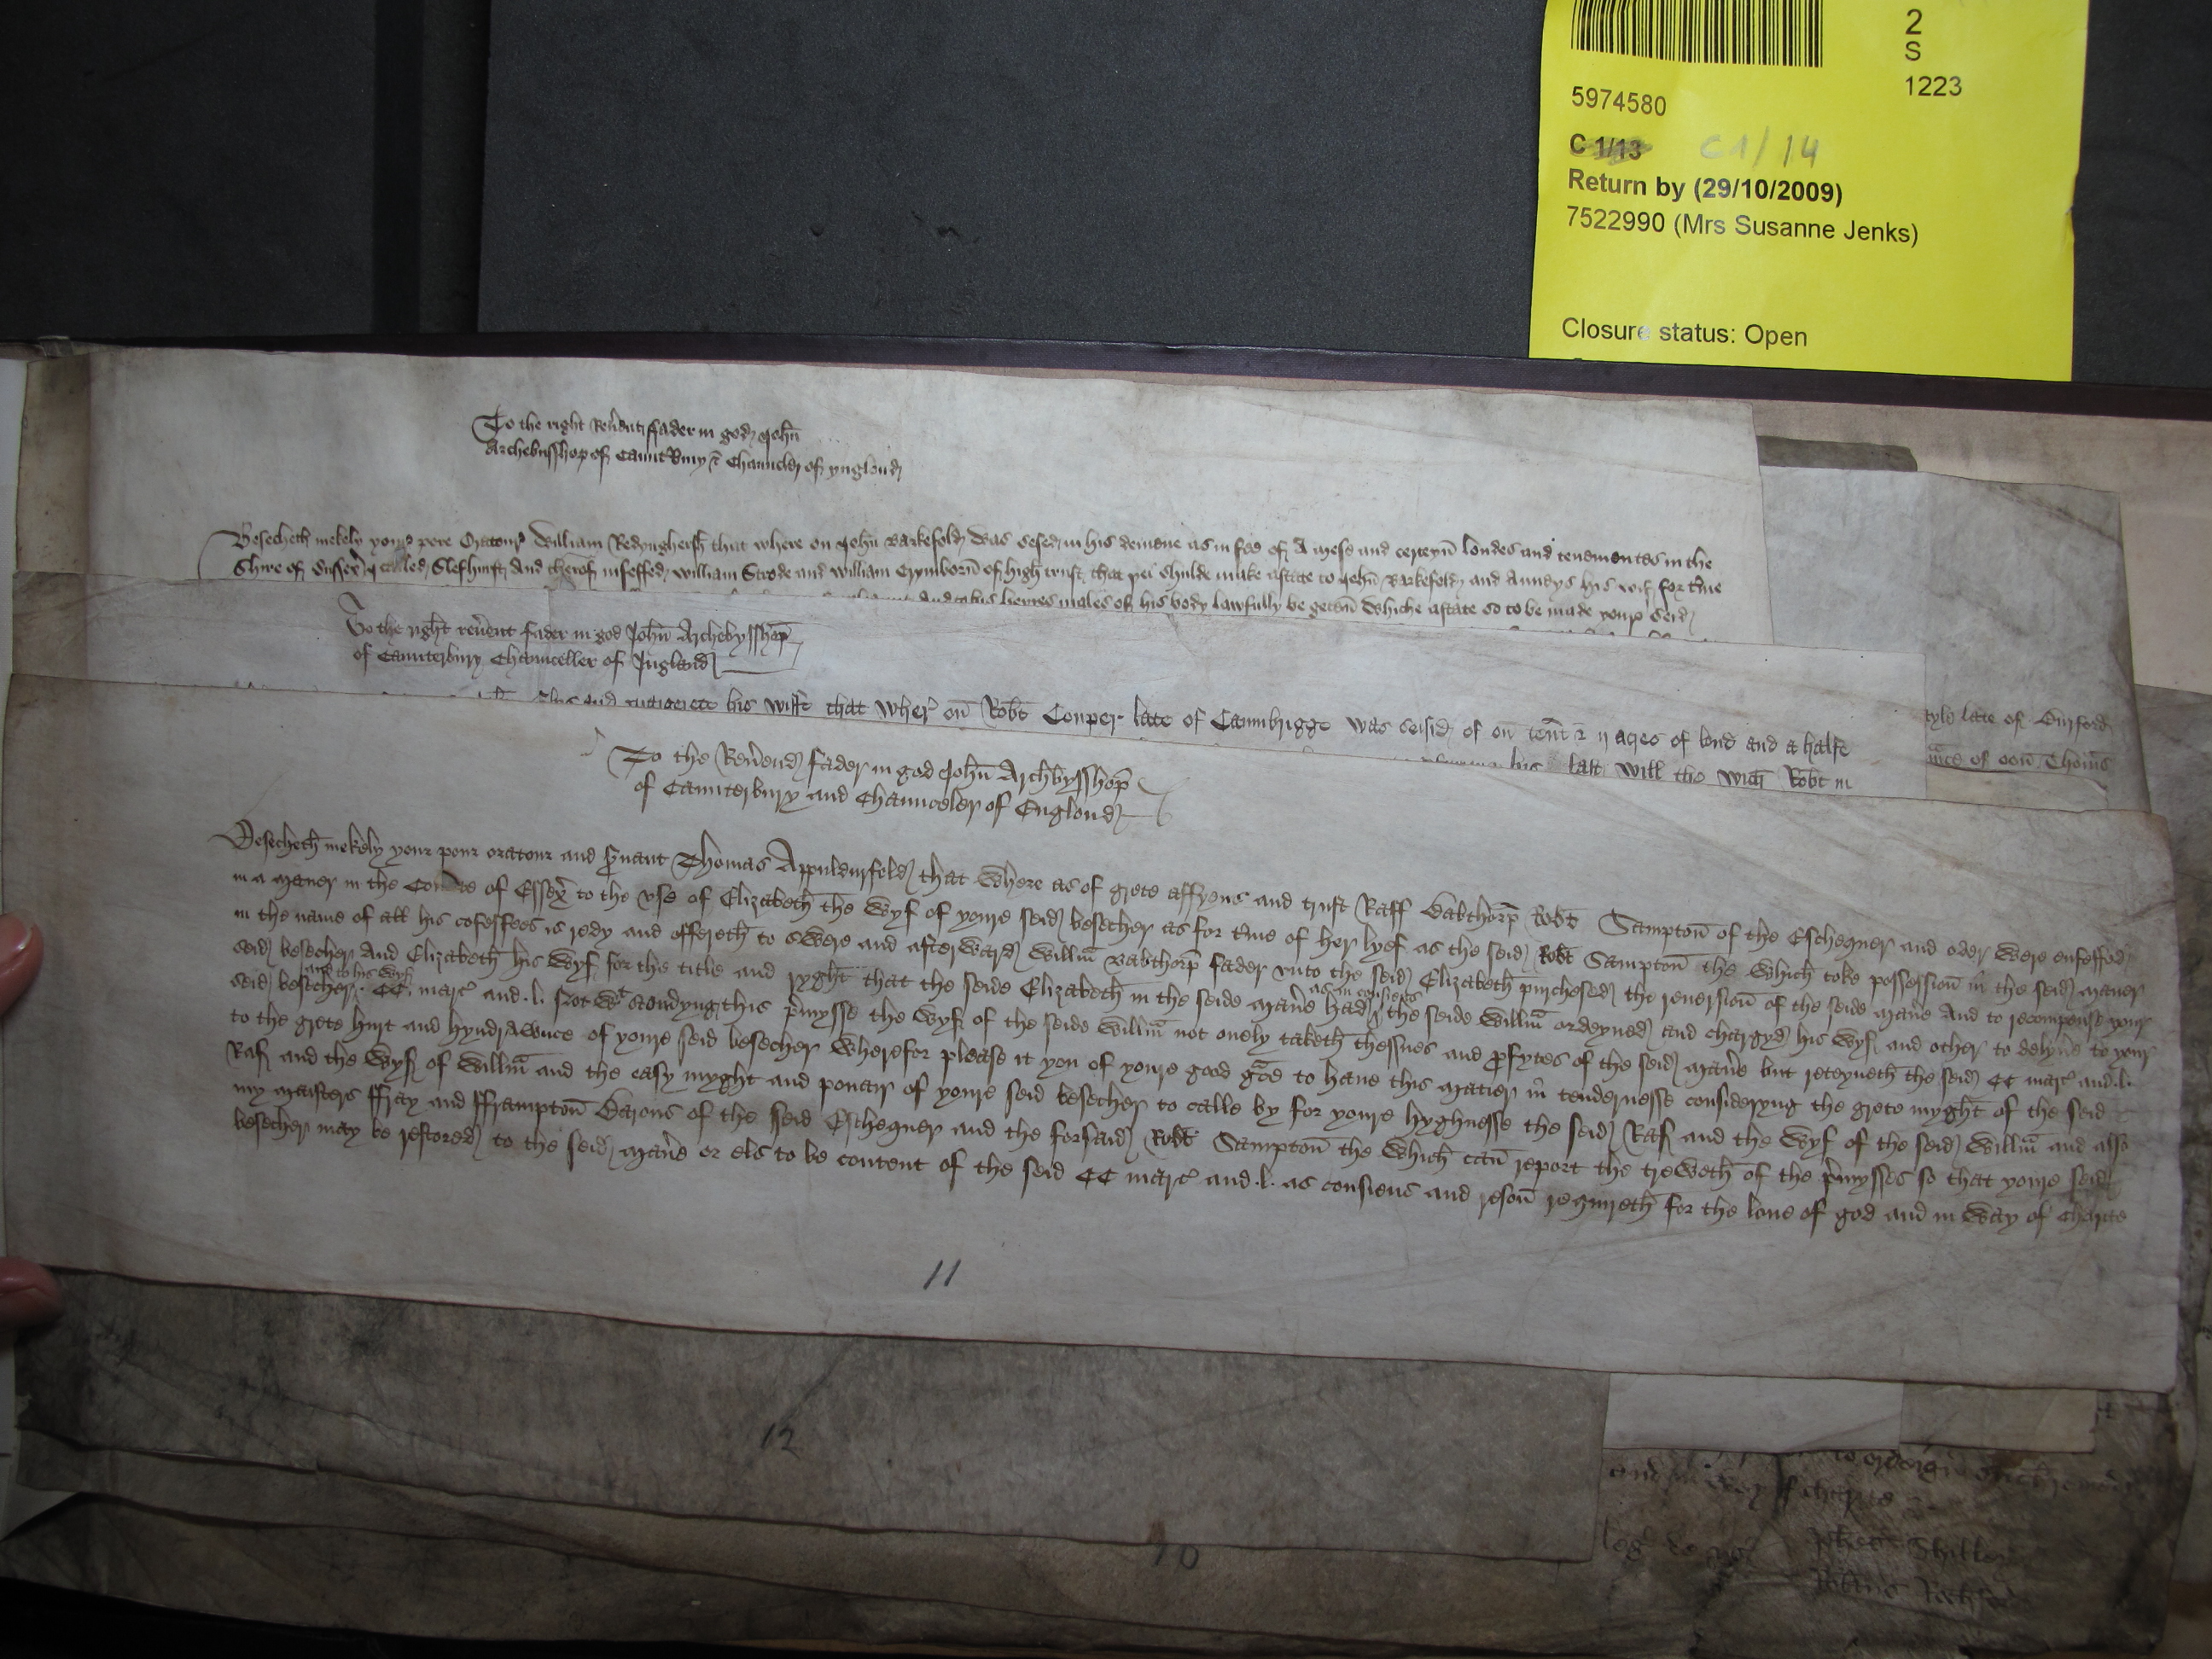 2
S
1223
5974580
C 1/13 C1/14
Return by (29/10/2009)
7522990 (Mrs Susanne Jenks)
Closure status: Open
To the right Reũent ffader in god John
Archebusshop of Cauntᵬury & Chaunclr of ynglond
Besecheth mekely your pore Oratour William Redynghersh that where on John Barkefold was sesed in his demene as in fee of A mese and certeyn londes and tenementes in the
Shire of Sussex called Slefhurst And therof infeffed William Strode and William Crymborn of high trust that þei shulde make astate to John Barkefold and Anneys his wif for t̃me
heires males of his body lawfully be geten Whiche astate so to be made your seid
To the right reũent fader in god John Archebysshop
of Caunterbury Chaunceller of Ingland
his wiff that wher on Robt Couper late of Caumbrigge was seisid of on ten̄t & ij acres of lond and a halfe
his last will the wich Robt in
late of
of oon Thom̃s
To the Reũend fader in god John Archbysshop
of Caunterbury and Chaunceler of Englond
Besecheth mekely your pour oratour and s̃uant Thomas Appuldurfeld that where as of grete affyens and trust Raff Babthorp Robt Sampton of the Eschequer and oder were enfeffed
in a maner in the Counte of Essex to the vse of Elizabeth the wyf of youre seid besecher as for t̃me of her lyef as the seid Robt Sampton the which toke possession in the seid maner
in the name of all his cofeffees is redy and offereth to swere and afterward Willm̃ Babthorp fader vnto the seid Elizabeth purchesed the reuersion of the seide mañe And to recompense your
seid besecher And Elizabeth his wyf for the title and ryght that the seide Elizabeth in the seide mañe had as in consiens the seide Willm̃ ordeyned and chargyd his wyf and other to delyũe to your
seid besecher and to his wyf CC marc and .l. Not wt stondyng this p̃mysse the wyf of the seide Willm̃ not onely taketh thessues and ꝓfytes of the seid mañe but reteyneth the seid CC marc and .l.
to the grete hurt and hyndrawnce of youre seid besecher Wherefor please it you of youre good gr̃ce to haue this matier in tendernesse consideryng the grete myght of the seid
Raf and the wyf of Willm̃ and the easy myght and pouair of youre seid besecher to calle by for youre hyghnesse the seid Raf and the wyf of the seid Willm̃ and also
my maisters ffray and fframpton Barons of the seid Eschequer and the forsaid Robt Sampton the which can report the treweth of the p̃mysses so that youre seid
besecher may be restored to the seid mañe or els to be content of the seid CC marc and .l. as consiens and reson requireth for the loue of god and in way of charite
11
12
10
and in wey of charite